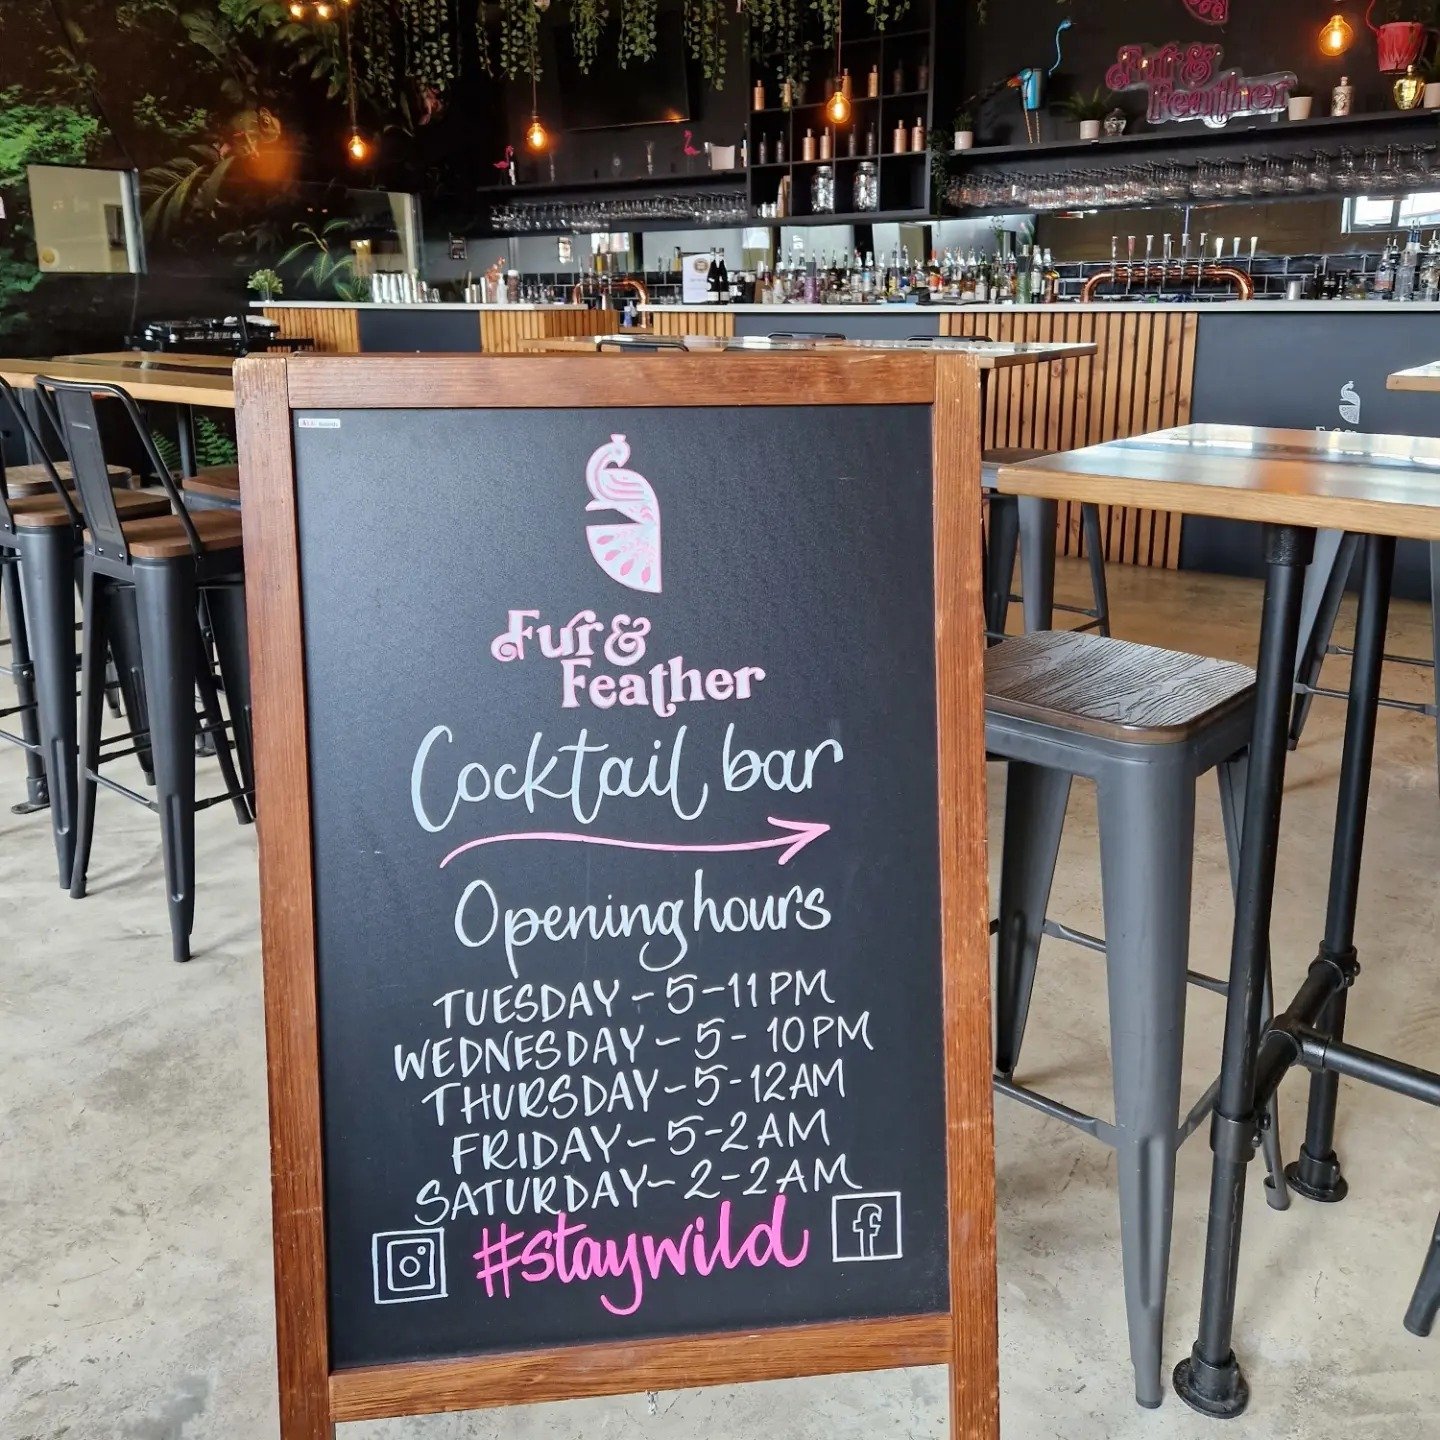 Fur &
Feather
Fur &
Feather
Cocktail bar
Opening hours
TUESDAY - 5-11PM
WEDNESDAY - 5- 10PM
THURSDAY - 5-12AM
FRIDAY - 5-2AM
SATURDAY - 2-2AM
#staywild